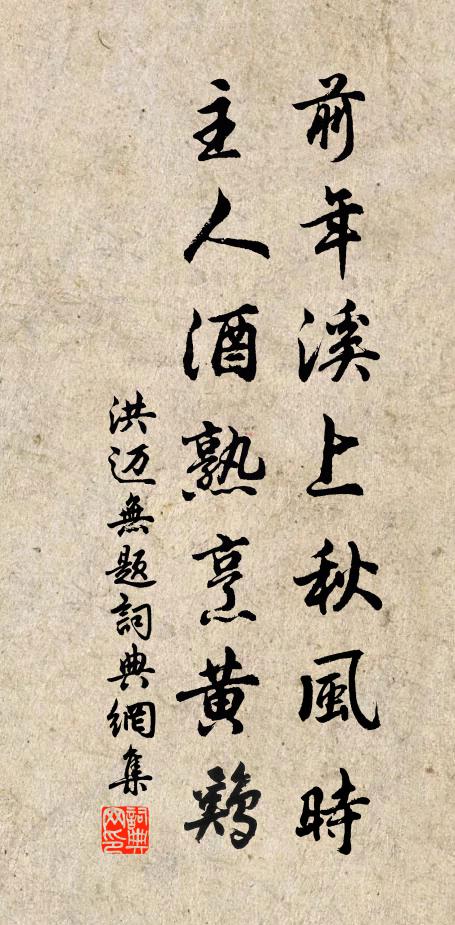 前年溪上秋風時
主人酒熟烹黄鷄
洪迈無题詞典網集
詞典网印